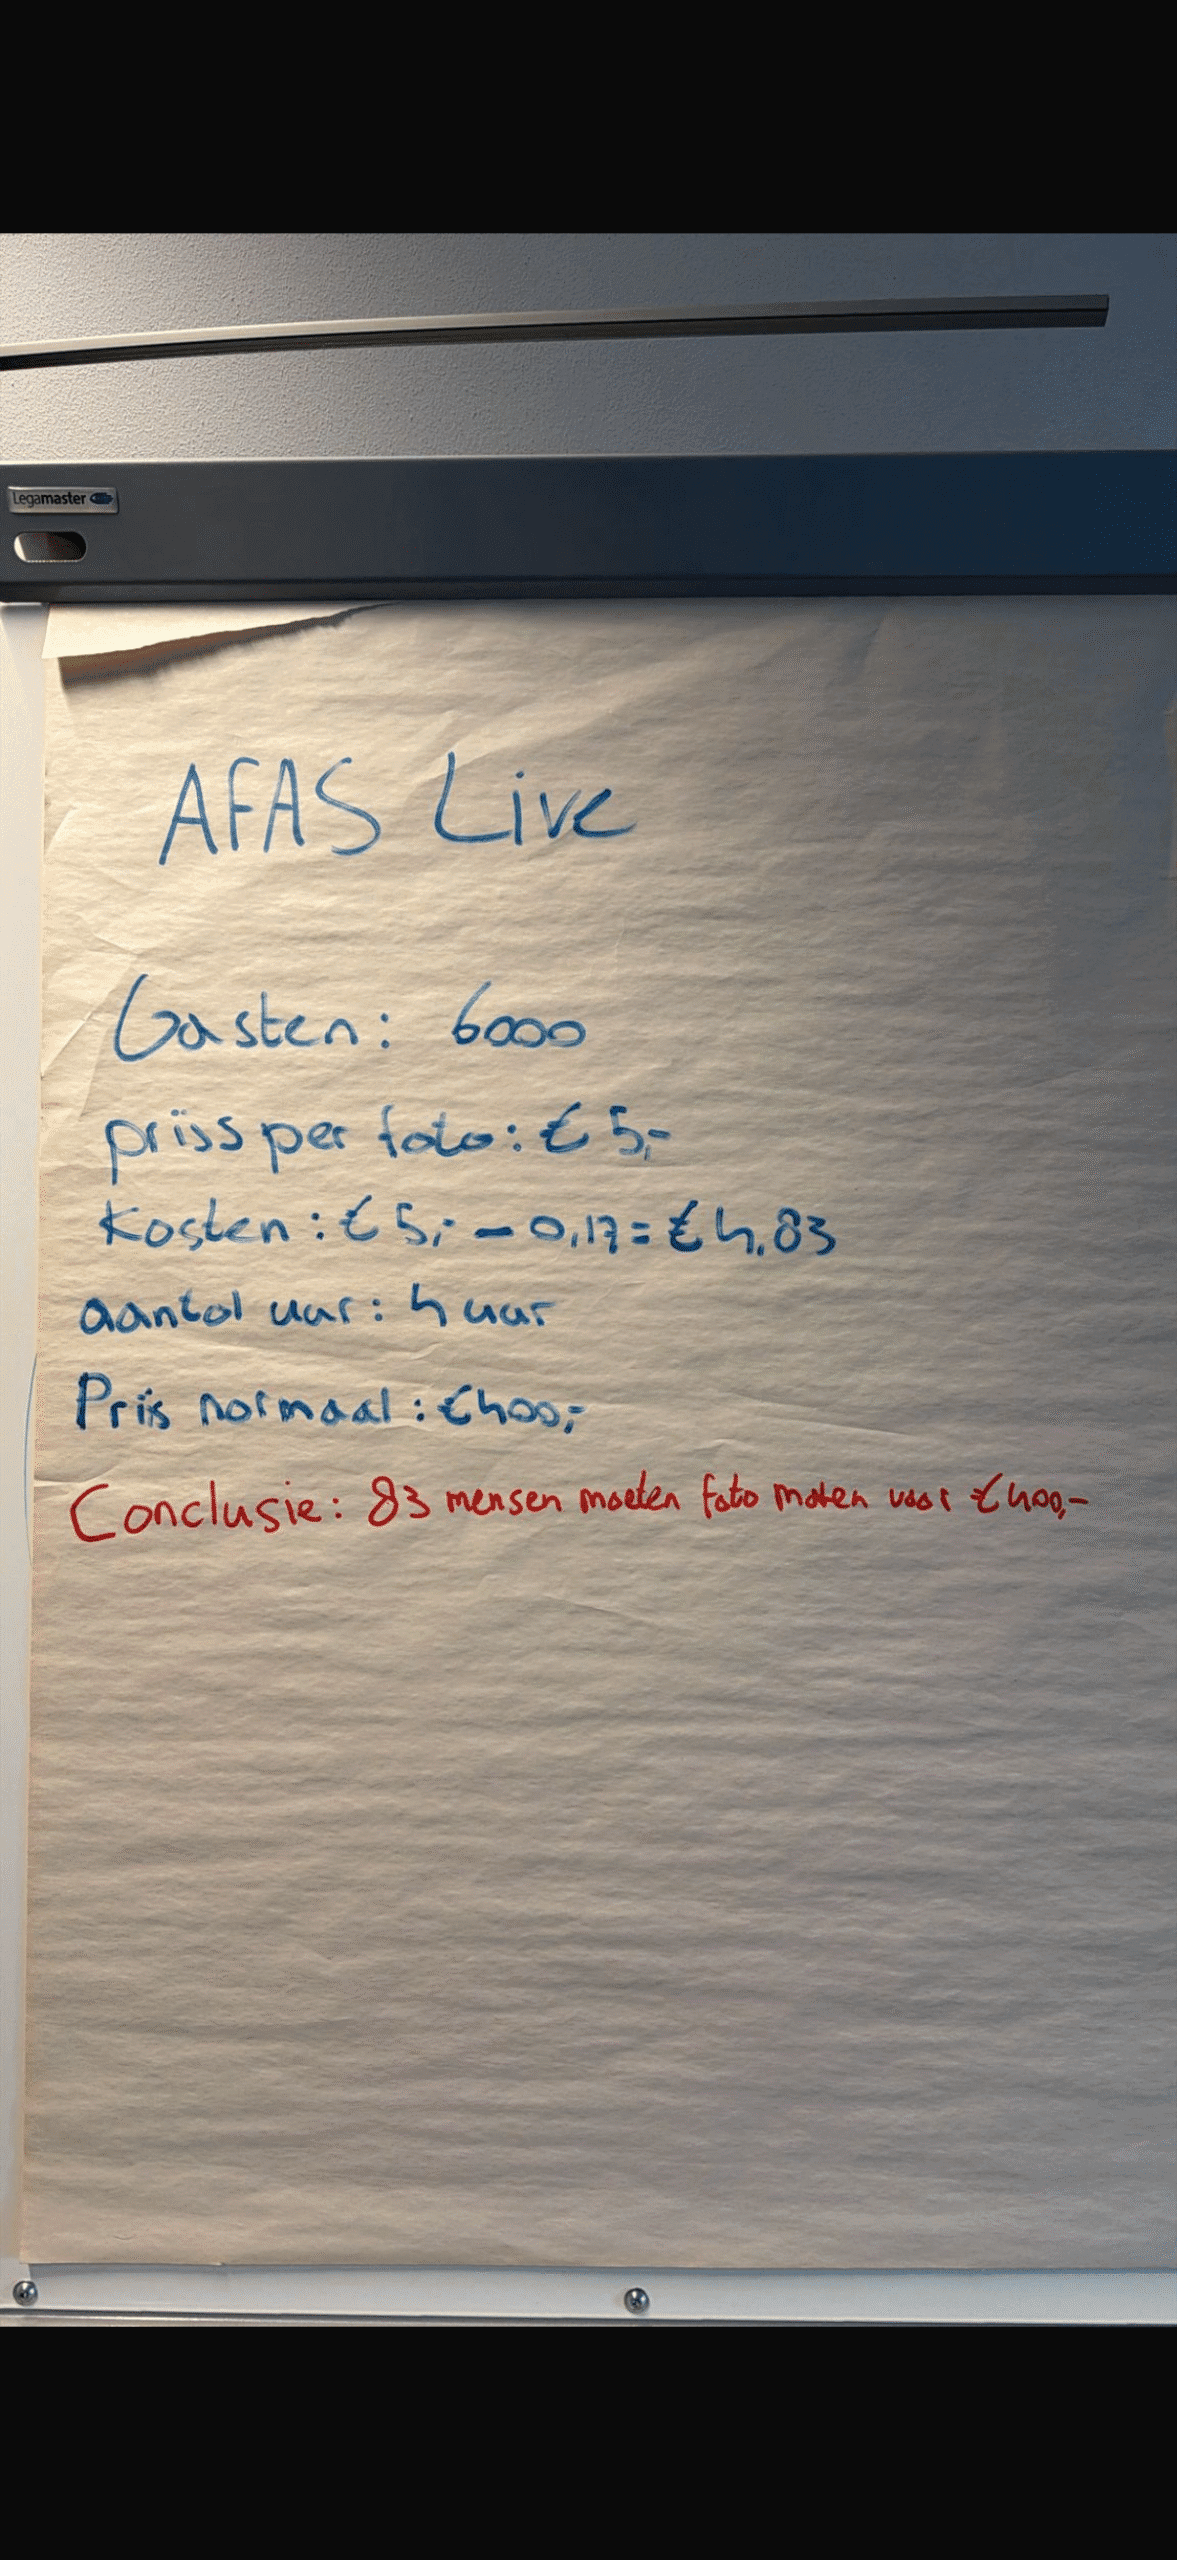 Legamaster
AFAS Live
Gasten: 6000
prijs per foto: € 5,-
Kosten: € 5,- - 0,17 = € 4,83
aantal uur: 4 uur
Prijs normaal: € 400,-
Conclusie: 83 mensen moeten foto maken voor € 400,-